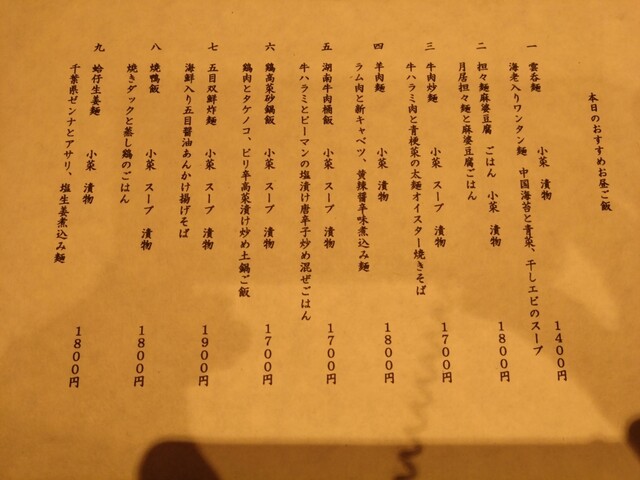 本日のおすすめお昼ご飯
一 雲呑麺 小菜 漬物
海老入りワンタン麺 中国海苔と青菜、干しエビのスープ
1400円
二 担々麺麻婆豆腐 ごはん 小菜 漬物
月居担々麺と麻婆豆腐ごはん
1800円
三 牛肉炒麺 小菜 スープ 漬物
牛ハラミ肉と青梗菜の太麺オイスター焼きそば
1700円
四 羊肉麺 小菜 漬物
ラム肉と新キャベツ、黄辣醤辛味煮込み麺
1800円
五 湖南牛肉桶飯 小菜 スープ 漬物
牛ハラミとピーマンの塩漬け唐辛子炒め混ぜごはん
1700円
六 鶏高菜砂鍋飯 小菜 スープ 漬物
鶏肉とタケノコ、ピリ辛高菜漬け炒め土鍋ご飯
1700円
七 五目双鮮炸麺 小菜 スープ 漬物
海鮮入り五目醤油あんかけ揚げそば
1900円
八 焼鴨飯 小菜 スープ 漬物
焼きダックと蒸し鶏のごはん
1800円
九 蛤仔生姜麺 小菜 漬物
千葉県ゼンナとアサリ、塩生姜煮込み麺
1800円